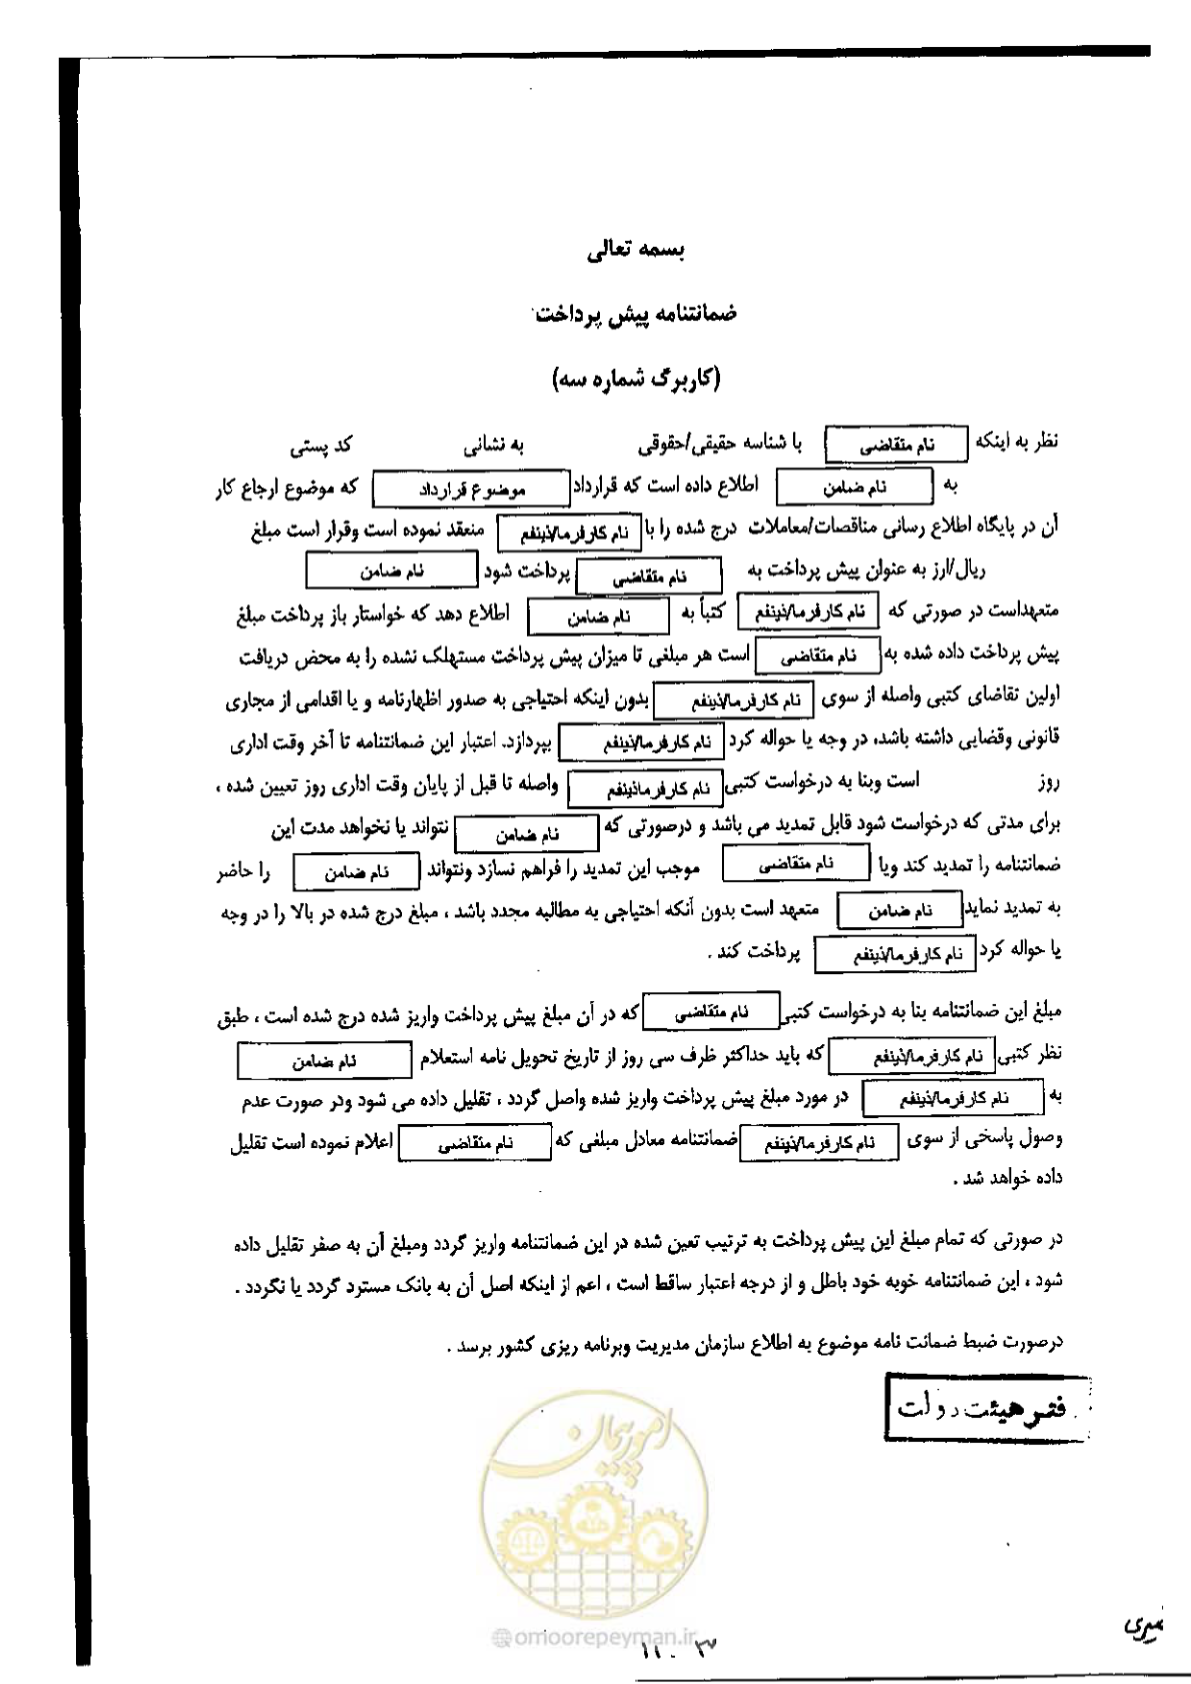 بسمه تعالی
ضمانتنامه پیش پرداخت
(کاربرگ شماره سه)
نظر به اینکه نام متقاضی با شناسه حقیقی/حقوقی به نشانی کد پستی
به نام ضامن اطلاع داده است که قرارداد موضوع قرارداد که موضوع ارجاع کار
آن در پایگاه اطلاع رسانی مناقصات/معاملات درج شده را با نام کارفرما/ذینفع منعقد نموده است وقرار است مبلغ
ریال/ارز به عنوان پیش پرداخت به نام متقاضی پرداخت شود نام ضامن
متعهداست در صورتی که نام کارفرما/ذینفع کتباً به نام ضامن اطلاع دهد که خواستار باز پرداخت مبلغ
پیش پرداخت داده شده به نام متقاضی است هر مبلغی تا میزان پیش پرداخت مستهلک نشده را به محض دریافت
اولین تقاضای کتبی واصله از سوی نام کارفرما/ذینفع بدون اینکه احتیاجی به صدور اظهارنامه و یا اقدامی از مجاری
قانونی وقضایی داشته باشد، در وجه یا حواله کرد نام کارفرما/ذینفع بپردازد. اعتبار این ضمانتنامه تا آخر وقت اداری
روز است وبنا به درخواست کتبی نام کارفرماذینفع واصله تا قبل از پایان وقت اداری روز تعیین شده ،
برای مدتی که درخواست شود قابل تمدید می باشد و درصورتی که نام ضامن نتواند یا نخواهد مدت این
ضمانتنامه را تمدید کند ویا نام متقاضی موجب این تمدید را فراهم نسازد ونتواند نام ضامن را حاضر
به تمدید نماید نام ضامن متعهد است بدون آنکه احتیاجی به مطالبه مجدد باشد ، مبلغ درج شده در بالا را در وجه
یا حواله کرد نام کارفرما/ذینفع پرداخت کند .
مبلغ این ضمانتنامه بنا به درخواست کتبی نام متقاضی که در آن مبلغ پیش پرداخت واریز شده درج شده است ، طبق
نظر کتبی نام کارفرما/ذینفع که باید حداکثر ظرف سی روز از تاریخ تحویل نامه استعلام نام ضامن
به نام کارفرما/ذینفع در مورد مبلغ پیش پرداخت واریز شده واصل گردد ، تقلیل داده می شود ودر صورت عدم
وصول پاسخی از سوی نام کارفرما/ذینفع ضمانتنامه معادل مبلغی که نام متقاضی اعلام نموده است تقلیل
داده خواهد شد .
در صورتی که تمام مبلغ این پیش پرداخت به ترتیب تعین شده در این ضمانتنامه واریز گردد ومبلغ آن به صفر تقلیل داده
شود ، این ضمانتنامه خوبه خود باطل و از درجه اعتبار ساقط است ، اعم از اینکه اصل آن به بانک مسترد گردد یا نگردد .
درصورت ضبط ضمانت نامه موضوع به اطلاع سازمان مدیریت وبرنامه ریزی کشور برسد .
فتر هیئت دولت
امور پیمان
omoorepeyman.ir